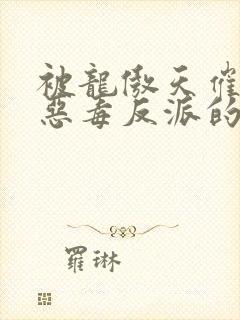 被龍傲天催
惡毒反派的
羅琳